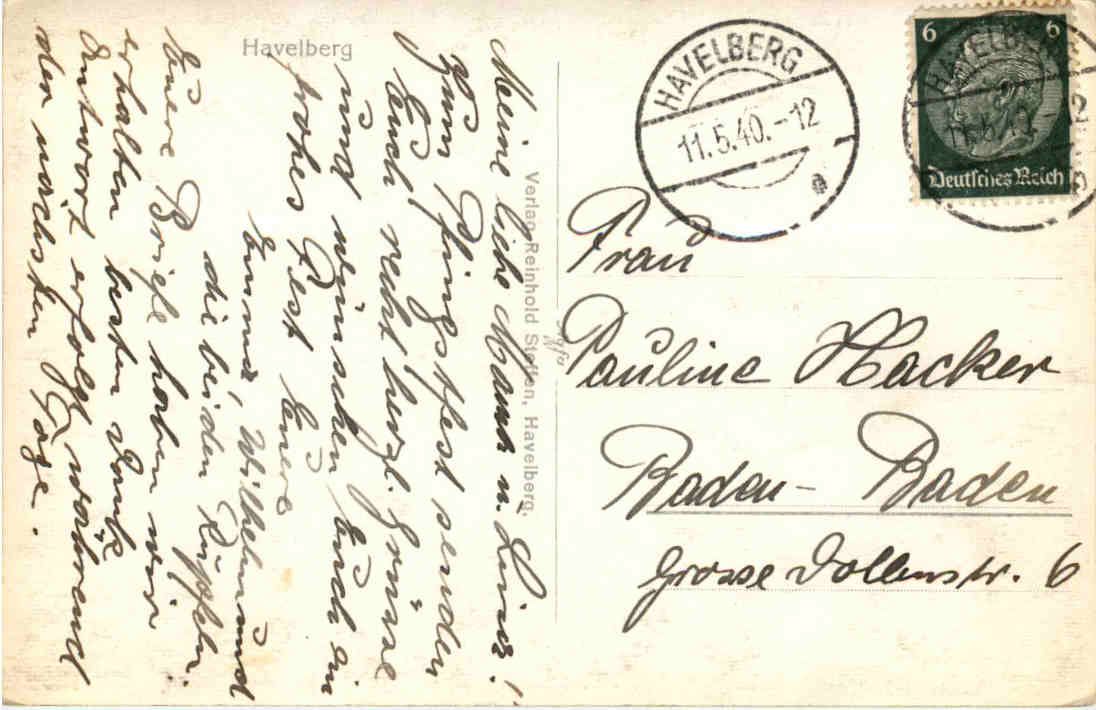 Havelberg
HAVELBERG
11.5.40.-12
HAVELBERG
11.5.40.-12
6 6
Deutsches Reich
Verlag Reinhold Steffen, Havelberg.
Agfa
Frau
Pauline Hacker
Baden-Baden
Grosse Dollenstr. 6
Meine liebe Mama u.
zum Pfingstfest senden
Euch recht herzl. Grüsse
und wünschen Euch ein
frohes Fest Euere
Emma, Wilhelm und
die beiden
Euere Briefe haben wir
erhalten besten Dank
Antwort erfolgt während
den nächsten Tage.